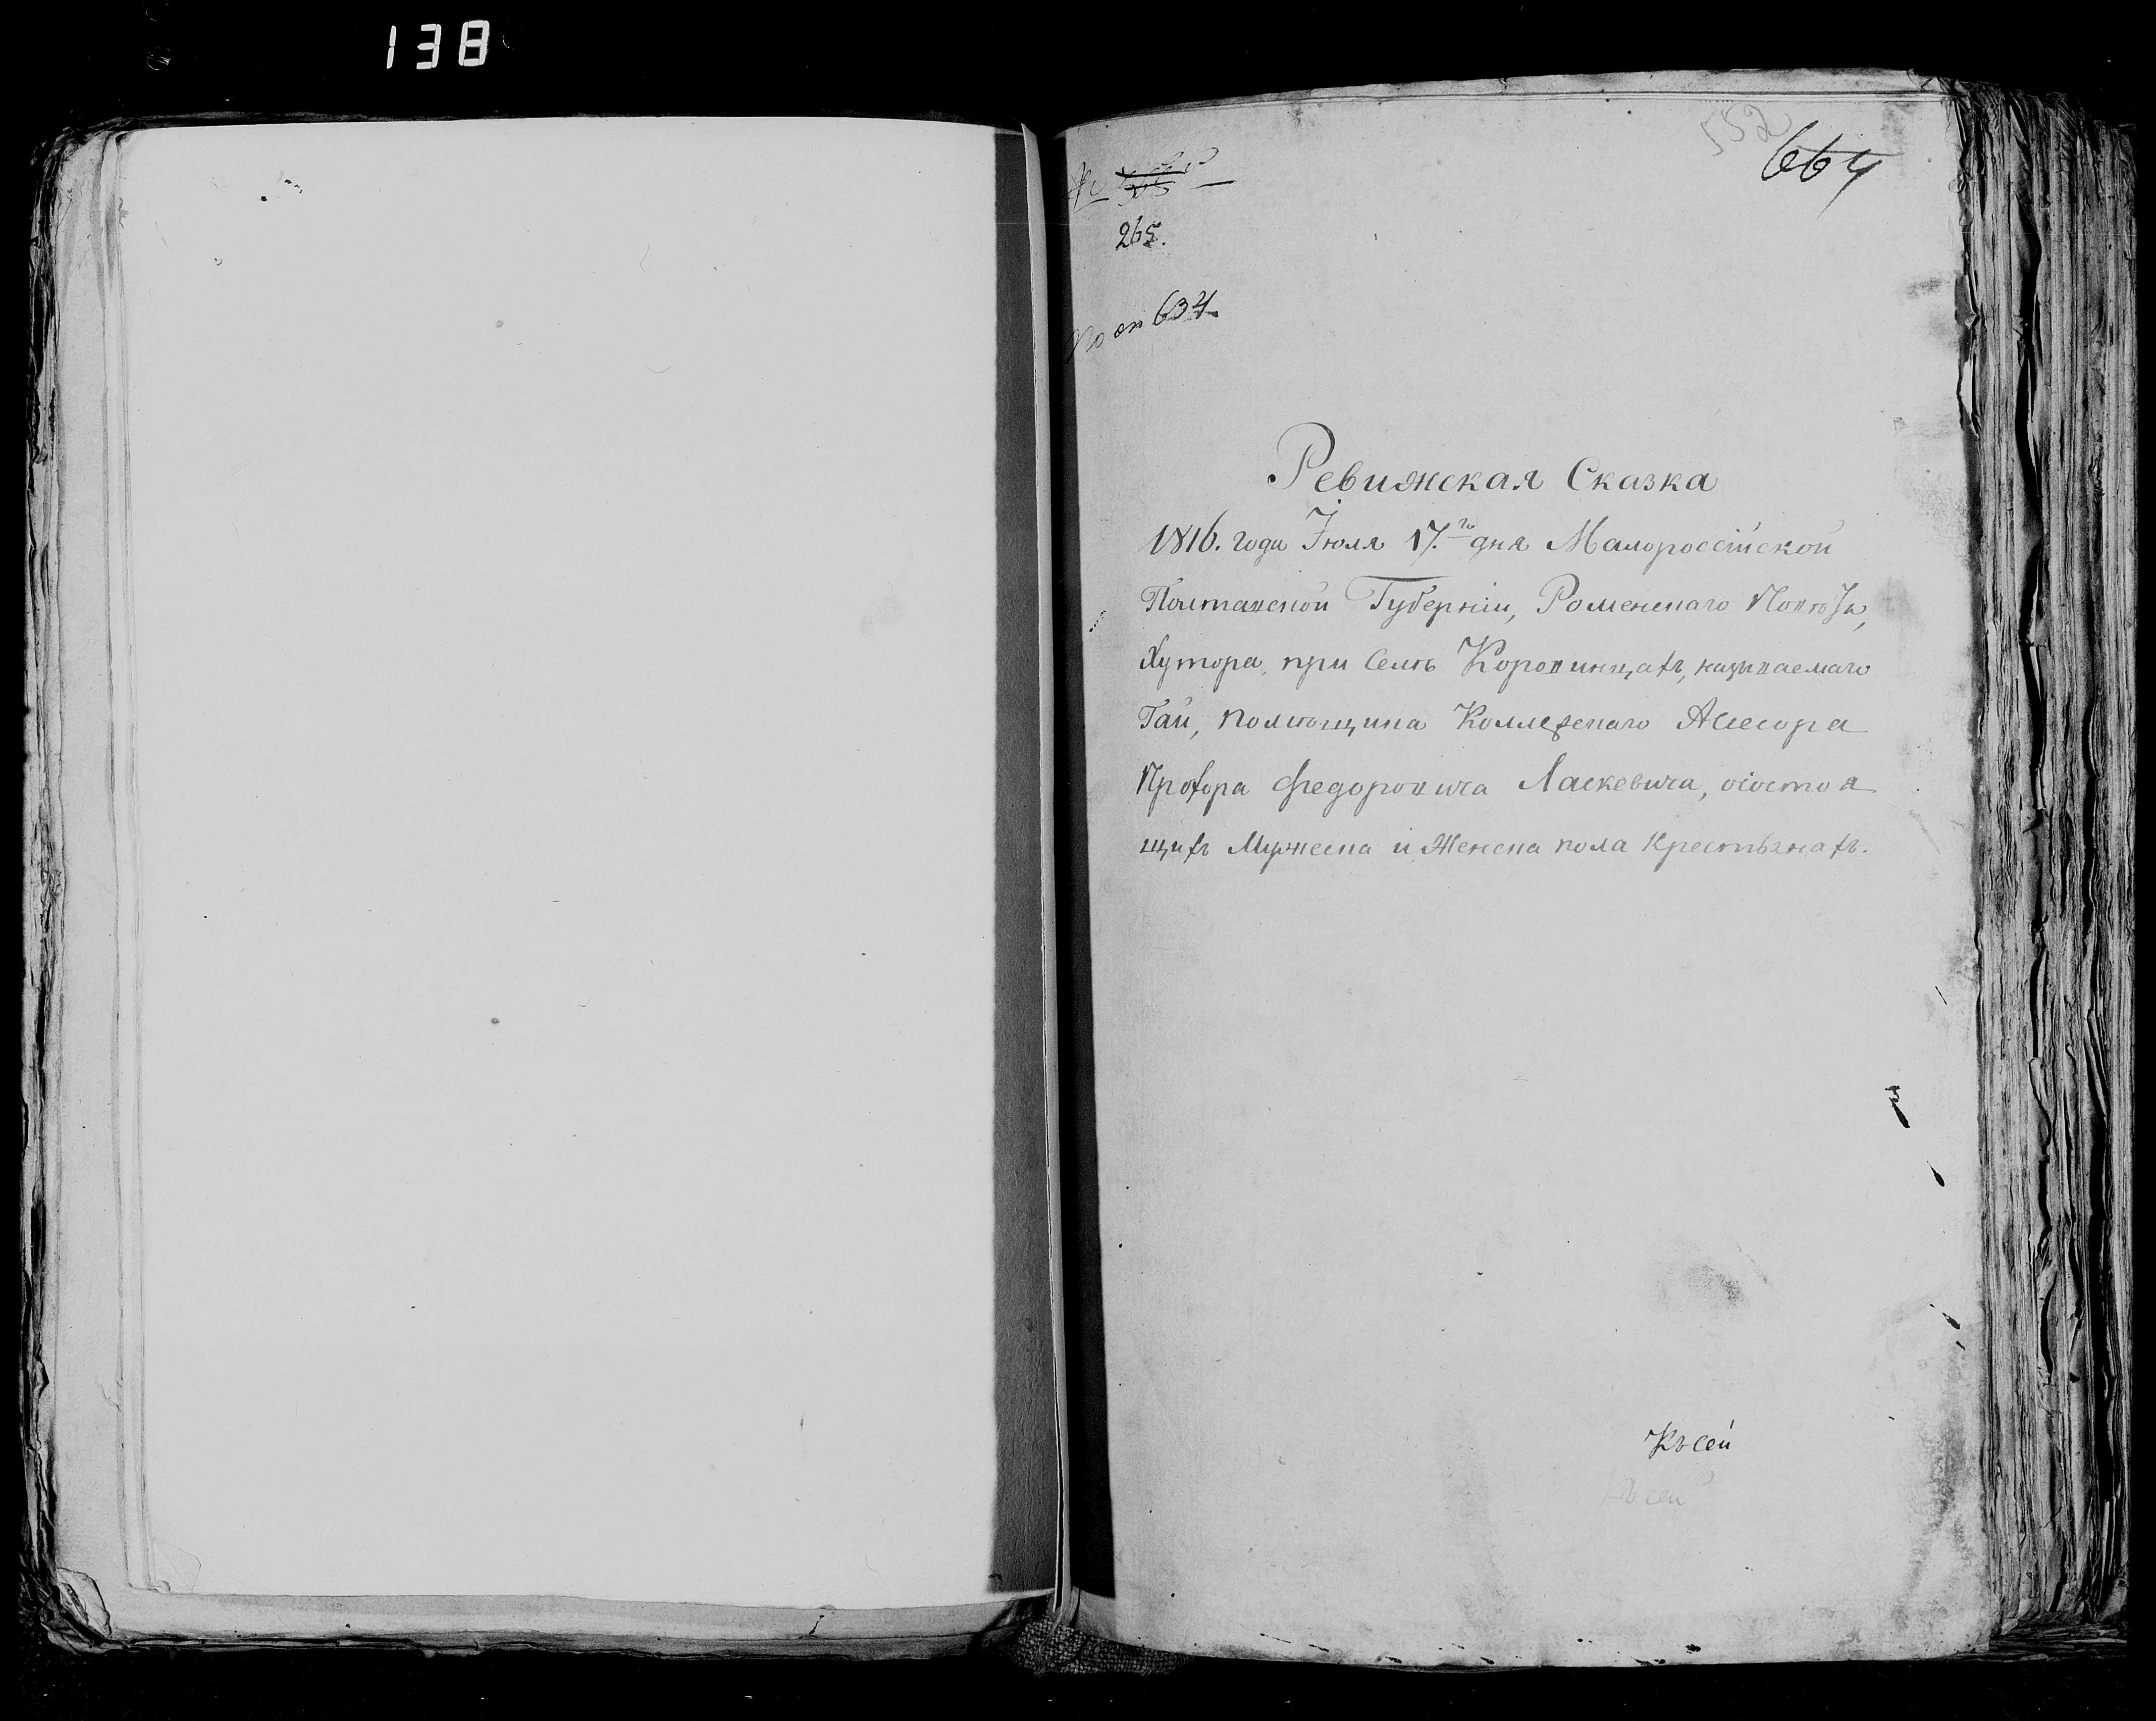 138
552
664
№
265.
по оп 634.
Ревижская Сказка
1816. года Іюля 17.го дня Малороссійской
Полтавской Губерніи, Роменскаго Повѣта,
Хутора, при Селѣ Коровинцахъ, называемаго
Гай, помѣщика Коллежскаго Асесора
Прохора Федоровича Ласкевича, осостоя
щихъ Мужеска и Женска пола Крестьянахъ.
Къ сей
Къ сей